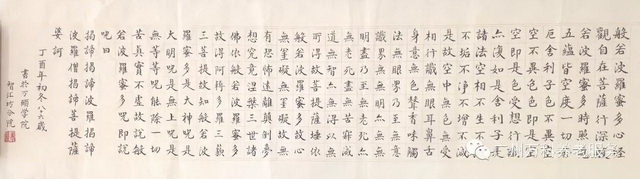 般若波羅蜜多心經
觀自在菩薩行深般
若波羅蜜多時照見
五蘊皆空度一切苦
厄舍利子色不異空
空不異色色即是空
空即是色受想行識
亦復如是舍利子是
諸法空相不生不滅
不垢不淨不增不減
是故空中無色無受
想行識無眼耳鼻舌
身意無色聲香味觸
法無眼界乃至無意
識界無無明亦無無
明盡乃至無老死亦
無老死盡無苦寂滅
道無智亦無得以無
所得故菩提薩埵依
般若波羅蜜多故心
無罣礙無罣礙故無
有恐怖遠離顛倒夢
想究竟涅槃三世諸
佛依般若波羅蜜多
故得阿耨多羅三藐
三菩提故知般若波
羅蜜多是大神咒是
大明咒是無上咒是
無等等咒能除一切
苦真實不虛故說般
若波羅蜜多咒即說
咒曰
揭諦揭諦波羅揭諦
波羅僧揭諦菩提薩
婆訶
丁酉年初冬八六歲
書於學院
智江分院